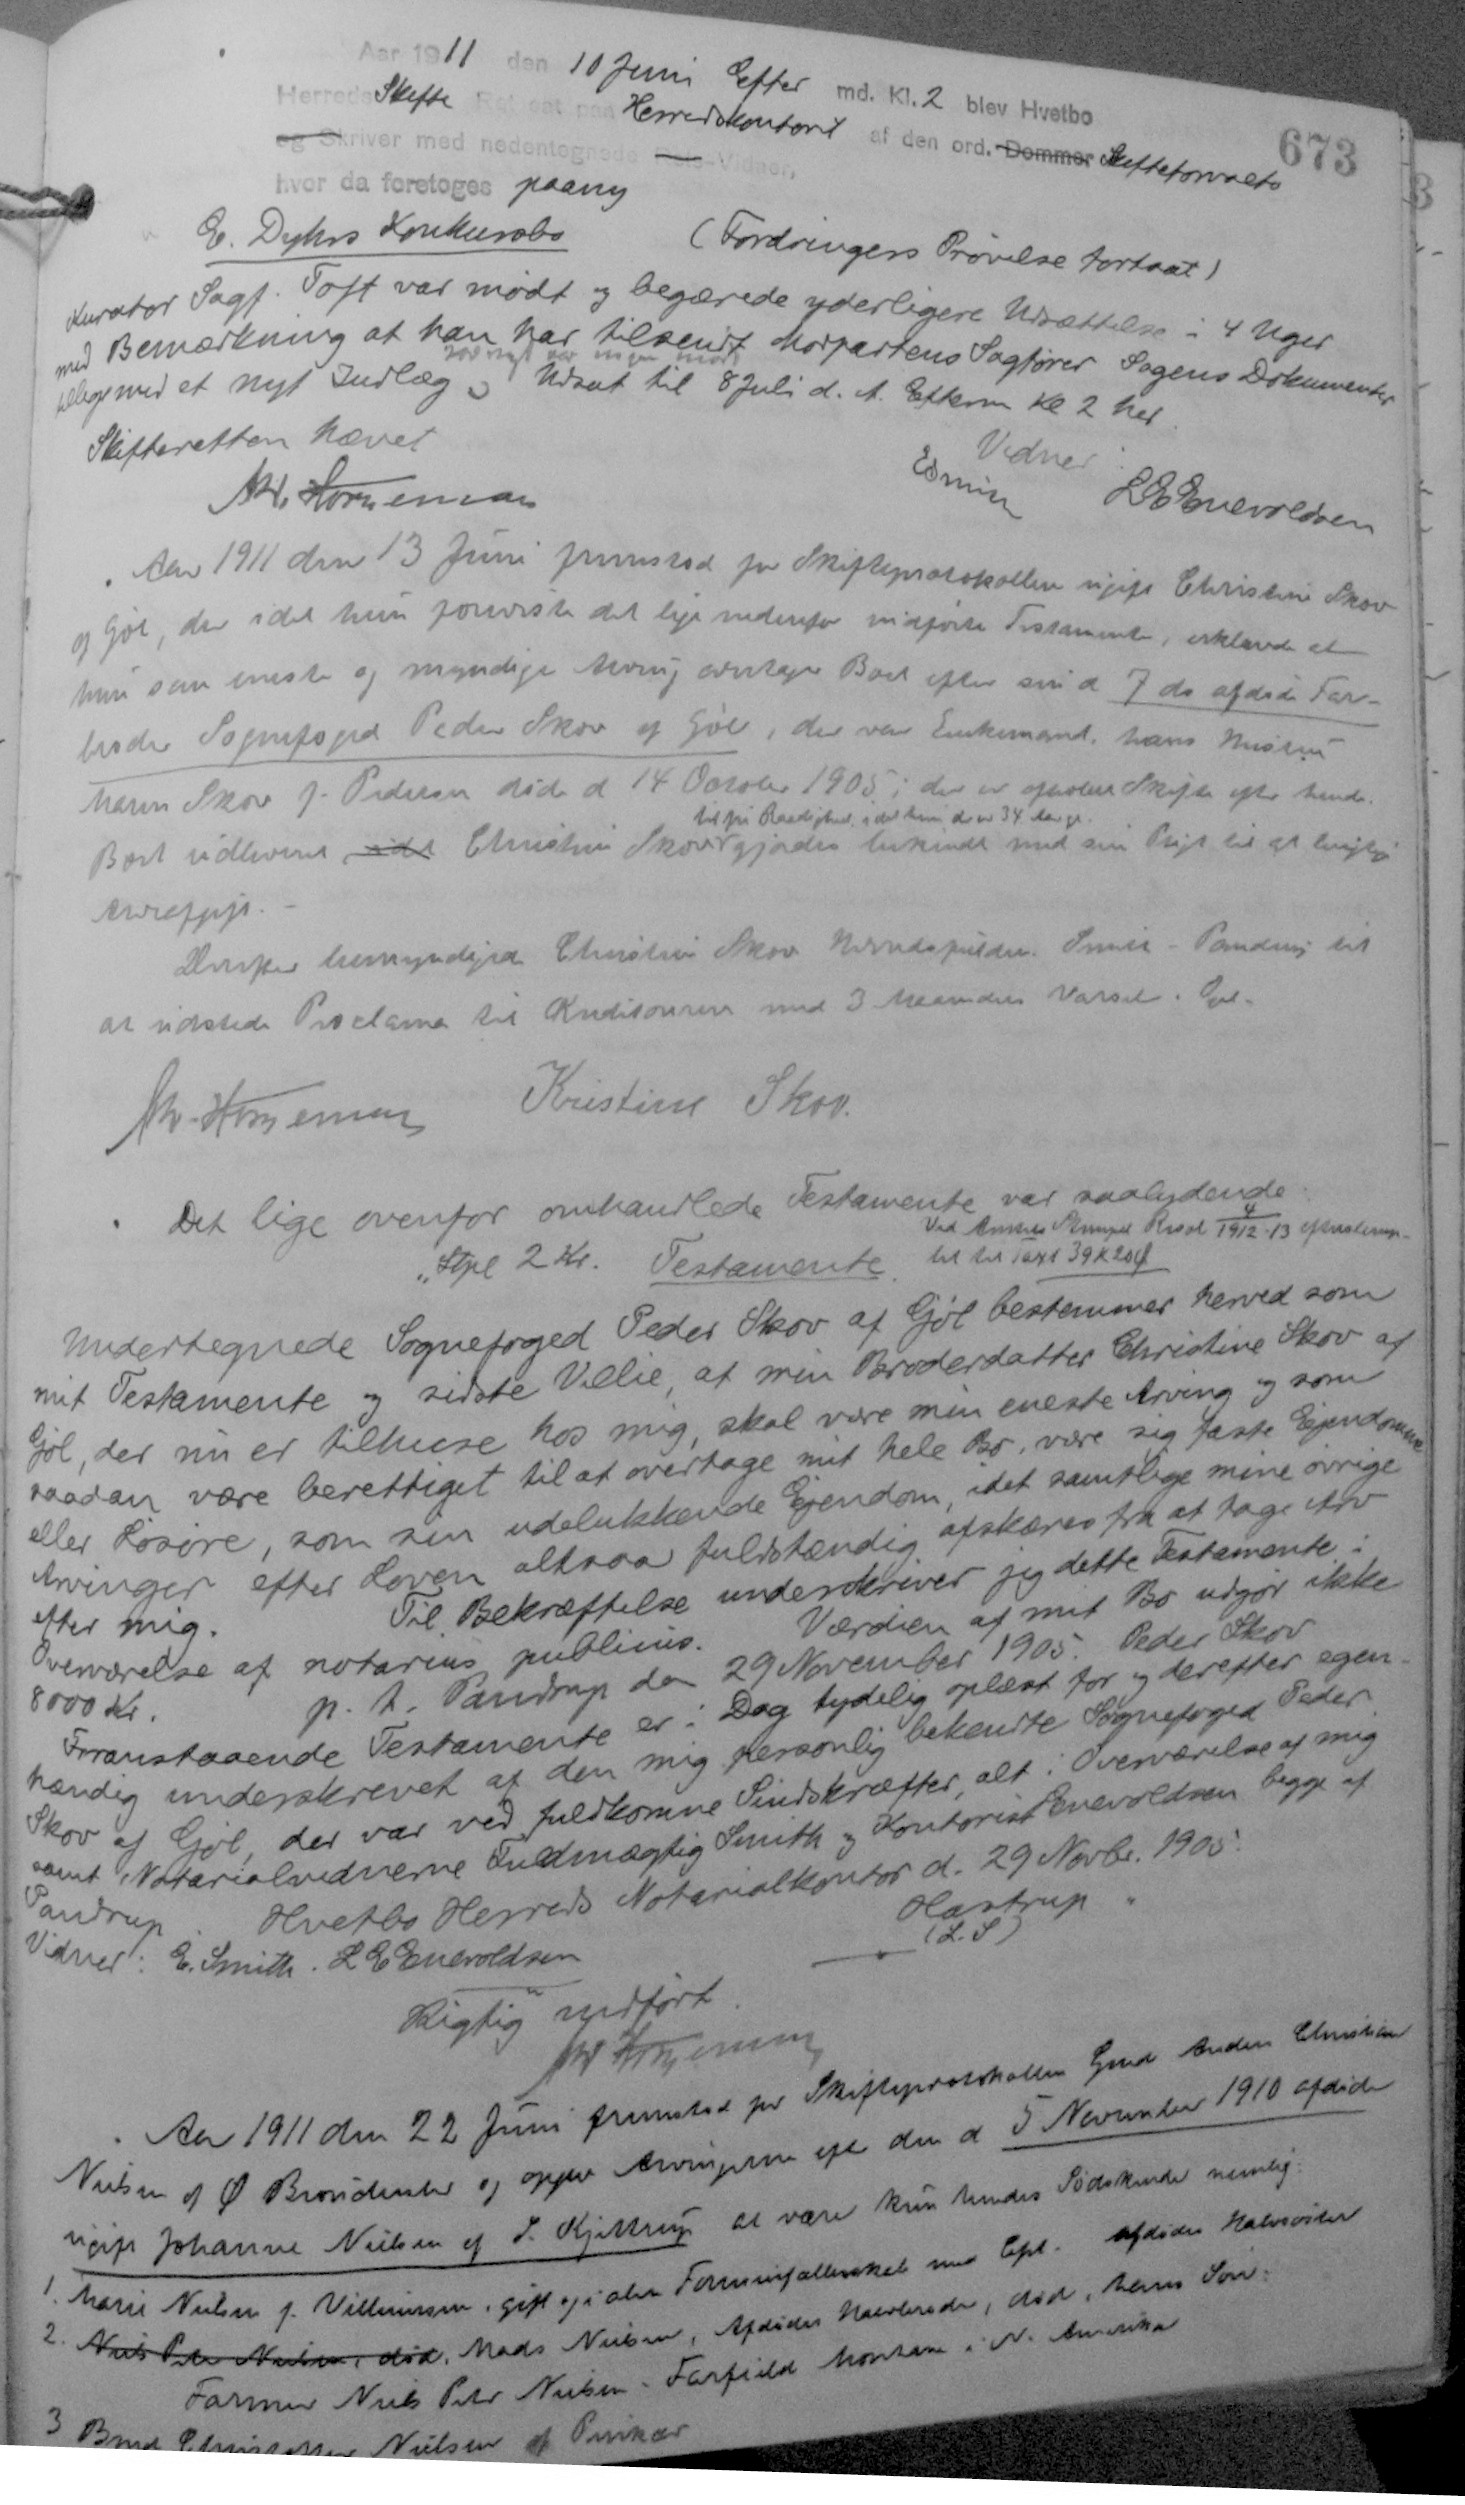 673
Aar 1911 den 10 Juni Efter md. Kl. 2 blev Hvetbo
Herreds Skifte Ret sat paa Herredskontoret af den ord. Dommer Skifteforvalter
og Skriver med nedentegnede Rets-Vidner,
hvor da foretoges paany
E. Dyhrs Konkursbo (Fordringers Prøvelse fortsat)
Kurator Sagf. Toft var mødt og begærede yderligere Udsættelse i 4 Uger
med Bemærkning at han har tilsendt Modpartens Sagfører Sagens Dokumenter
tillige med et nyt Indlæg
Udsat til 8 Juli d. A. Efterm Kl 2 her.
Skifteretten hævet
Vidner:
Horneman
ESmith LEEnevoldsen
Aar 1911 den 13 Juni fremstod for Skifteprotokollen ugift Christine Skov
af Gjøl, der idet hun foreviste det lige nedenfor indførte Testamente, erklærede at
hun som eneste og myndige Arving overtager Boet efter sin d 7 ds afdøde Far-
broder Sognefoged Peder Skov af Gjøl, der var Enkemand, hans Hustru
Maren Skov f. Pedersen døde d 14 October 1905; der er afholdt Skifte efter hende.
til fri Raadighed, idet hun der er 34 Aar gl.
Boet udleveret, idet Christine Skov gjordes bekendt med sin Pligt til at berigtige
Arveafgift. -
Derefter bemyndiges Christine Skov Herredsfuldm. Smith - Pandrup til
at udstede Proclama til Kreditorerne med 3 Maaneders Varsel.
Horneman Kristine Skov.
Det lige ovenfor omhandlede Testamente var saalydende:
"Stpl 2 Kr. Testamente.
Ved Amtets Stempel Revol 4/1912-13 efterstemp-
let til Taxt 39 K 20 Ø
Undertegnede Sognefoged Peder Skov af Gjøl bestemmer herved som
mit Testamente og sidste Villie, at min Broderdatter Christine Skov af
Gjøl, der nu er tilhuse hos mig, skal være min eneste Arving og som
saadan være berettiget til at overtage mit hele Bo, være sig faste Ejendomme
eller Løsøre, som sin udelukkende Ejendom, idet samtlige mine øvrige
Arvinger efter Loven altsaa fuldstændig afskæres fra at tage Arv
efter mig. Til Bekræftelse underskriver jeg dette Testamente i
Overværelse af notarius publicus. Værdien af mit Bo udgør ikke
8000 Kr. p. t. Pandrup den 29 November 1905. Peder Skov
Foranstaaende Testamente er i Dag tydelig oplæst for og derefter egen-
hændig underskrevet af den mig personlig bekendte Sognefoged Peder
Skov af Gjøl, der var ved fuldkomne Sindskræfter, alt i Overværelse af mig
samt Notarialvidnerne Fuldmægtig Smith og Kontorist Enevoldsen begge af
Pandrup. Hvetbo Herreds Notarialkontor d. 29 Novbr. 1905.
Hastrup "
(L.S)
Vidner: E. Smith. LEEnevoldsen
Rigtig indført.
Horneman
Aar 1911 den 22 Juni fremstod for Skifteprotokollen Gmd Anders Christian
Nielsen af Ø Brønderslev og opgav Arvingerne efter den d 5 November 1910 afdøde
ugift Johanne Nielsen af S. Kjettrup at være kun hendes Sødskende nemlig:
1. Marie Nielsen f. Villumsen, gift og i alm Formuefællesskab med Afdødes Halvsøster
2. Niels Peter Nielsen, død, Mads Nielsen, Afdødes Halvbroder, død, hans Søn:
Farmer Niels Peter Nielsen. Farfield Montana i N. Amerika
3 Nielsen af